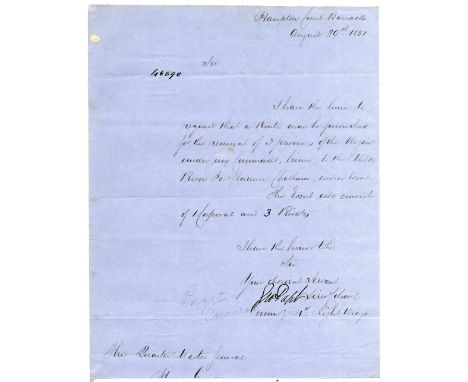 Hampton Court Barracks
August 29th 1851
Sir
46890
I have the honor to
request that a Route may be furnished
for the removal of 3 prisoners of the Regt
under my command, hence, to the Military
Prison Fort Clarence Chatham, under Escort
The Escort will consist
of 1 Corporal and 3 Privates
I have the honor to be
Sir
Your obedient Servant
Lieut Colonel
Comm 4th Light Drags
The Quarter Master General